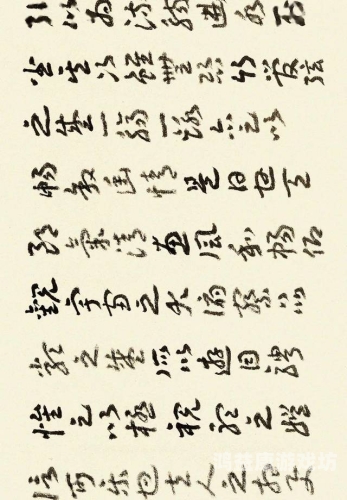 引以為流觴曲水列
坐其次雖無絲竹管弦
之盛一觴一詠亦足以
暢敘幽情是日也天
朗氣清惠風和暢仰
觀宇宙之大俯察品
類之盛所以遊目騁
懷足以極視聽之娛
信可樂也夫人之相與